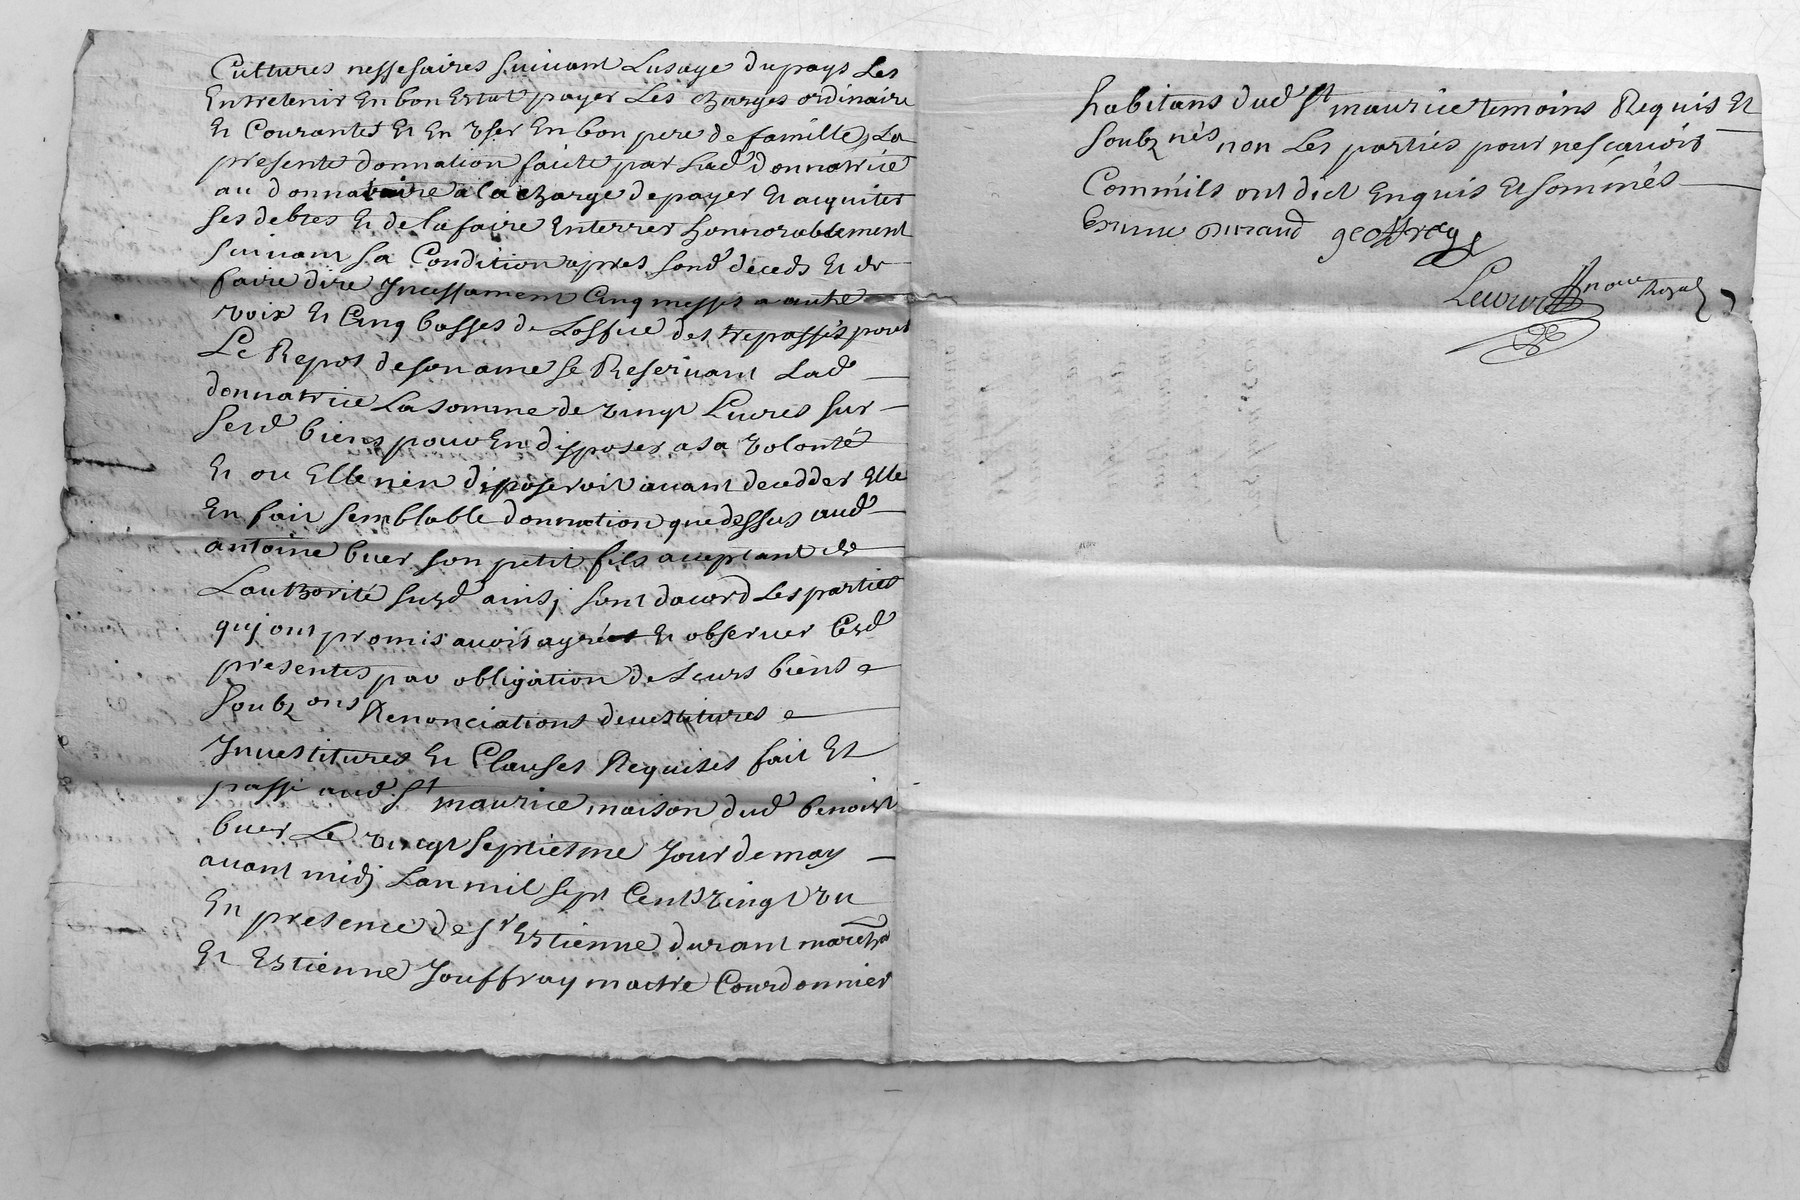 Cultures nessesaires suiuant Lusage dupays Les
Entretenir En bon Estat payer Les charges ordinaire
Et Courantes Et En Vser En bon pere de famille, La
presente donnation faite par Lad donnatrice
au donnataire a la charge de payer Et acquiter
ses debtes Et de la faire Enterrer honnorablement
suiuant sa Condition apres sond deceds Et de
faire dire Jncessamment Cinq messes a aute
voix Et Cinq basses de Loffice des trepassés pour
Le Repos de son ame se Reseruant Lad
donnatrice La somme de vingt Liures sur
sesd biens pour En disposer a sa volonté
Et ou Elle nen disposeroit auant decedder Elle
En fait semblable donnation que dessus aud
antoine buer son petit fils acceptant de
Lauthorité susd ainsj sont dacord Les parties
quj ont promis auoir agreé Et obseruer Cesd
presentes par obligation de Leurs biens
soubzons Renonciations deuestitures
Jnuestitures Et Clauses Requises fait Et
passé aud St maurice maison dud benoist
buer Le vingt septiesme Jour de may
auant midj Lan mil sept Cent vingt vn
En presence de sr Estienne durant marchd
Et Estienne Jouffray maitre Courdonnier
habitans dud St maurice temoins Requis Et
soubznés non Les parties pour ne scauoir
Comm'ils ont dict Enquis Et sommés
Durand geoffray
nore Royal